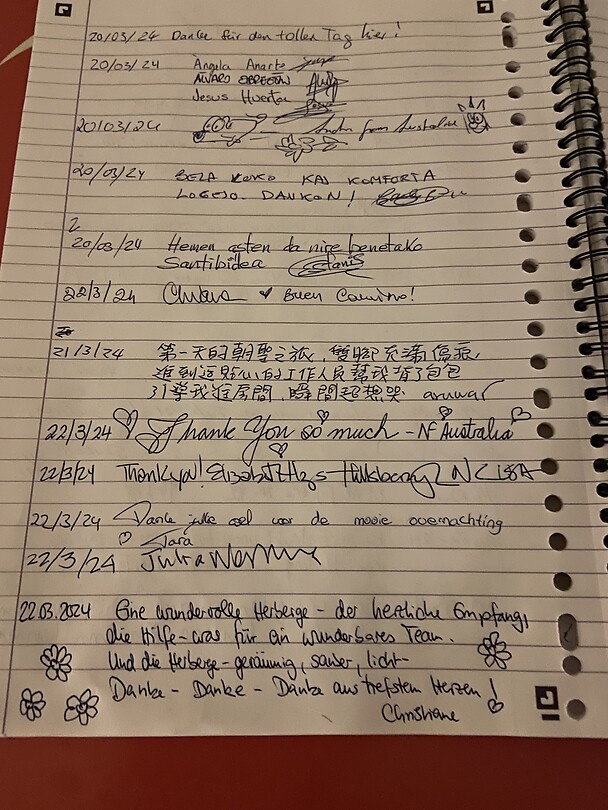 20/03/24 Danke für den tollen Tag hier!
20/03/24 Angela Anarte
ALVARO OBREGON
Jesus Huerta
20/03/24 from Australia
20/03/24 BELA KAJ KOMFORTA
LOGEJO. DANKON!
20/03/24 Hemen asten da nire benetako
Santibidea
22/3/24 Buen Camino!
21/3/24 第一天的朝聖之旅,雙腳充滿傷痕,
進到這貼心的工作人員幫我背了包包
引導我進房間,瞬間超想哭
22/3/24 Thank You so much - NF Australia
22/3/24 Thankyou! Hillsboro NC USA
22/3/24 Danke jullie wel voor de mooie overnachting
Tara
22/3/24 Julia
22.03.2024 Eine wundervolle Herberge - der herzliche Empfang,
die Hilfe - was für ein wunderbares Team.
Und die Herberge - geräumig, sauber, licht -
Danke - Danke - Danke aus tiefstem Herzen!
Christiane